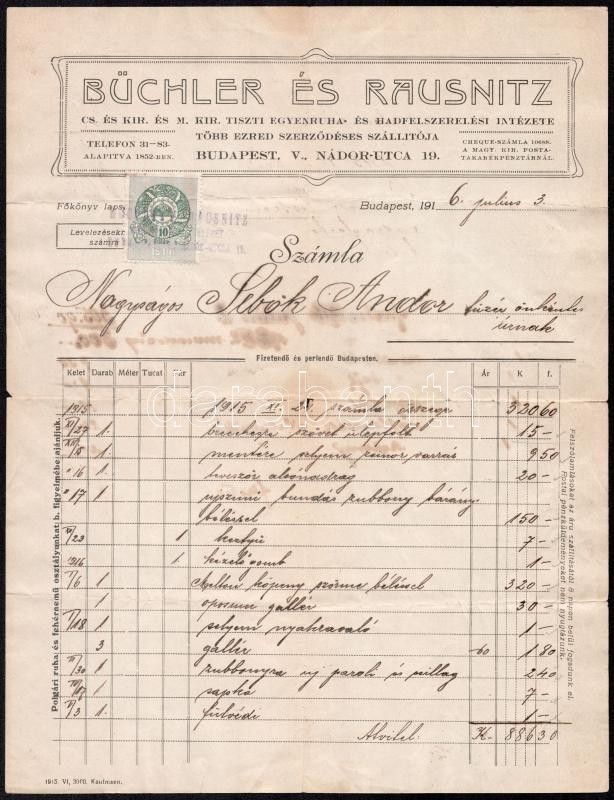 BÜCHLER ÉS RAUSNITZ
CS. ÉS KIR. ÉS M. KIR. TISZTI EGYENRUHA- ÉS HADFELSZERELÉSI INTÉZETE
TÖBB EZRED SZERZŐDÉSES SZÁLLITÓJA
TELEFON 31-83.
ALAPITVA 1852-BEN.
BUDAPEST, V., NÁDOR-UTCA 19.
CHEQUE-SZÁMLA 10688.
A MAGY. KIR. POSTA-
TAKARÉKPÉNZTÁRNÁL.
Főkönyv lap
Budapest, 1916 július 3.
Levelezésekr.
számra
10
Számla
Nagyságos Sebők Andor tüzér önkéntes
úrnak
Fizetendő és perlendő Budapesten.
Kelet Darab Méter Tucat Pár Ár K f.
1915 1915 XI. számla összege 320 60
XI/27 1. szövet ülepfolt 15 —
XII/15 1. mentére selyem zsinor varrás 9 50
" 16 1. alsónadrág 20 —
" 17 1 ujszerü bundás zubbony bárány
béléssel 150 —
1 kesztyü 7 —
1916 1. kézelő gomb 1 —
1 köpeny szőrme béléssel 320 —
1 oposum gallér 30 —
1 selyem nyakravaló 1 —
3 gallér 60 1 80
1 zubbonyra uj paroli és csillag 2 40
1 sapka 7 —
1. fülvédő 1 —
Átvitel: K 886 30
Polgári ruha és fehérnemű osztályunkat b. figyelmébe ajánljuk.
Felszólamlásokat az áru szállitásától 8 napon belül fogadunk el.
Postai pénzküldeményeket nem nyugtázunk.
1915. VI, 3000. Kaufmann.
darabanth